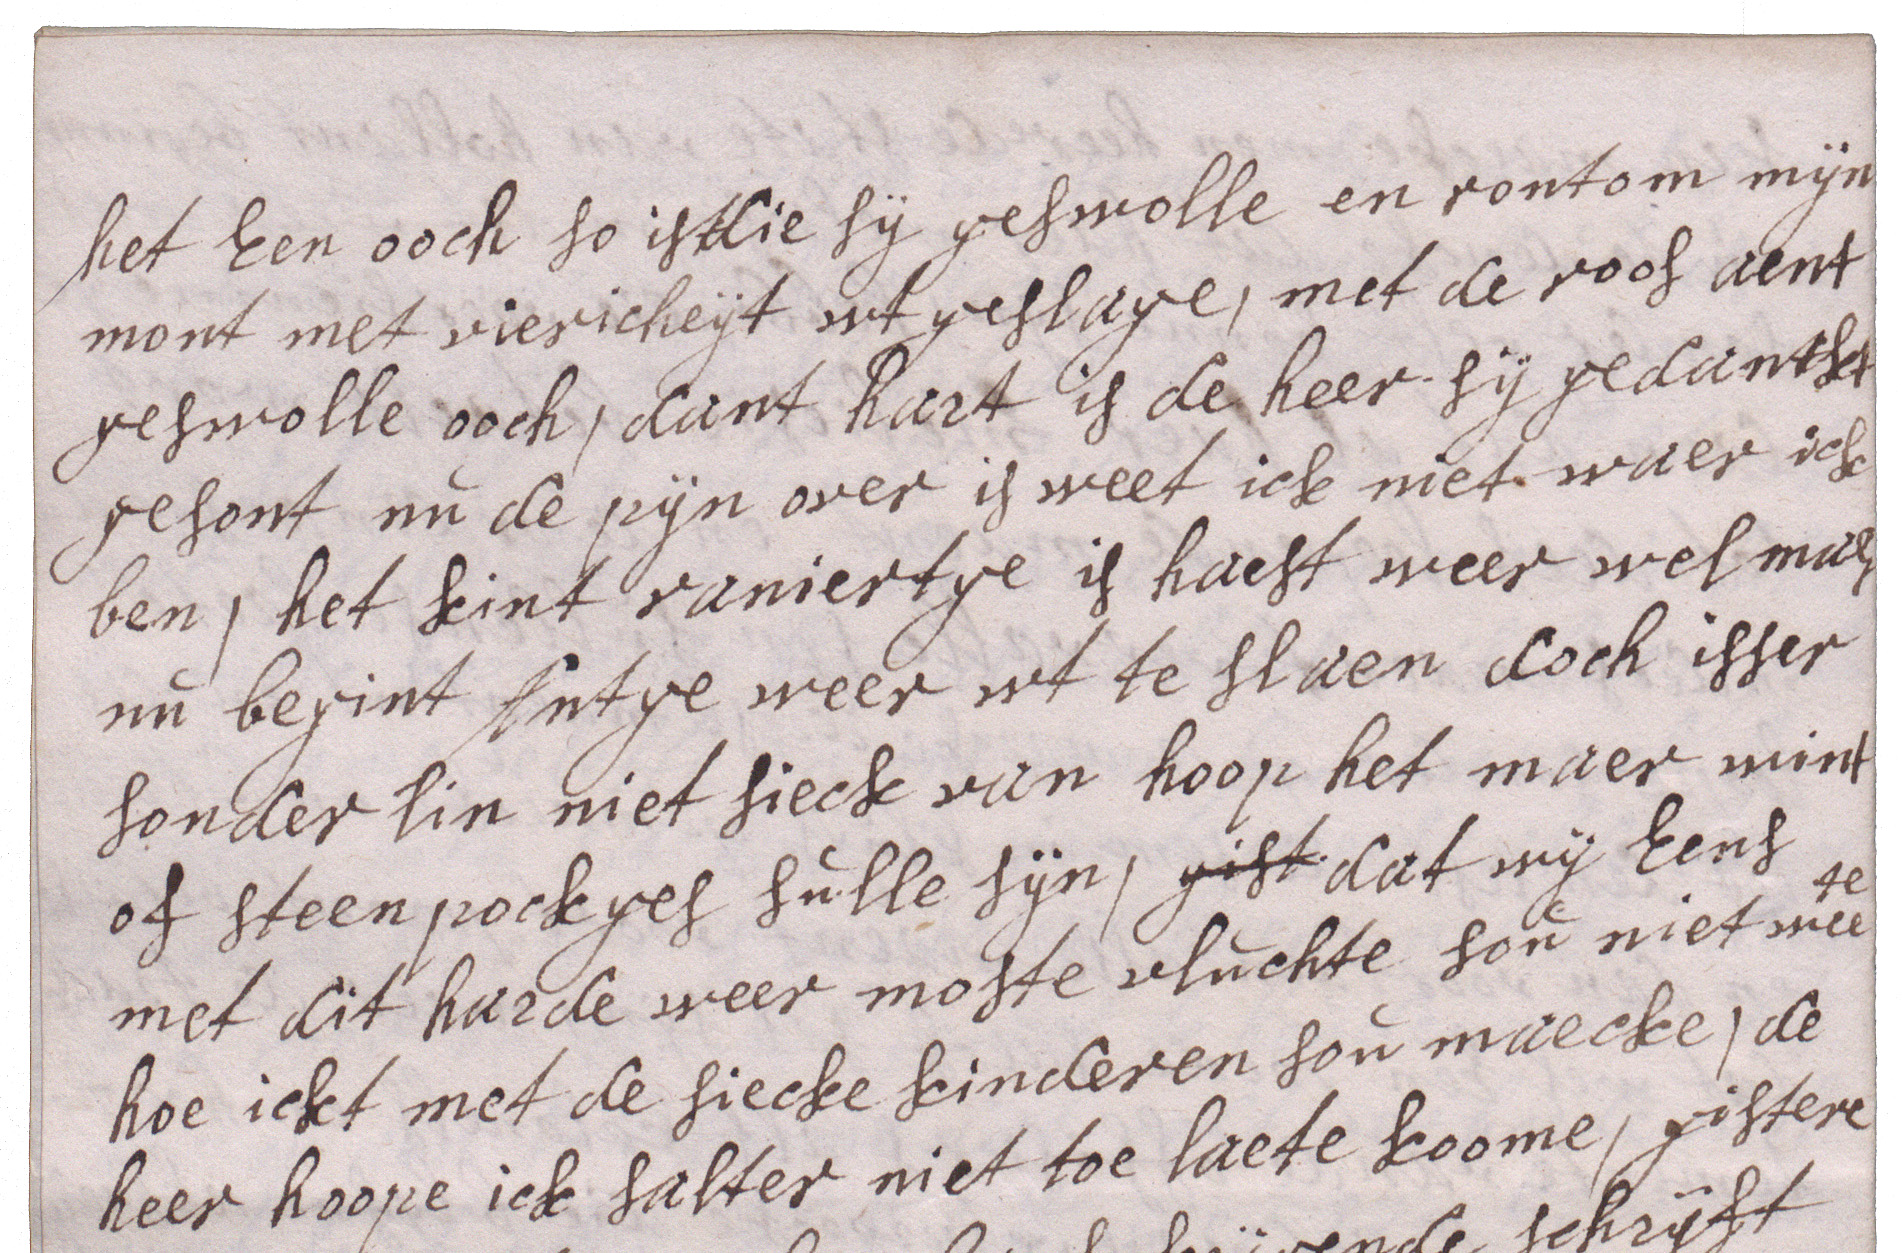 het Een ooch so ist die sÿ geswolle en rontom mÿn
mont met viericheÿt wt geslage, met de roos aent
geswolle ooch, dant hart is de heer sÿ gedanckt
gesont nu de pÿn over is weet ick niet waer ick
ben, het kint raniertge is haest weer wel maer
nu begint weer wt te slaen doch isser
sonderlin niet sieck van hoop het maer wint
of steen pockges sulle sÿn, gist dat wÿ Eens
met dit harde weer moste vluchte sou niet weete
hoe ickt met de siecke kinderen sou maecke, de
heer hoope ick salter niet toe laete koome, gistere
schrÿft